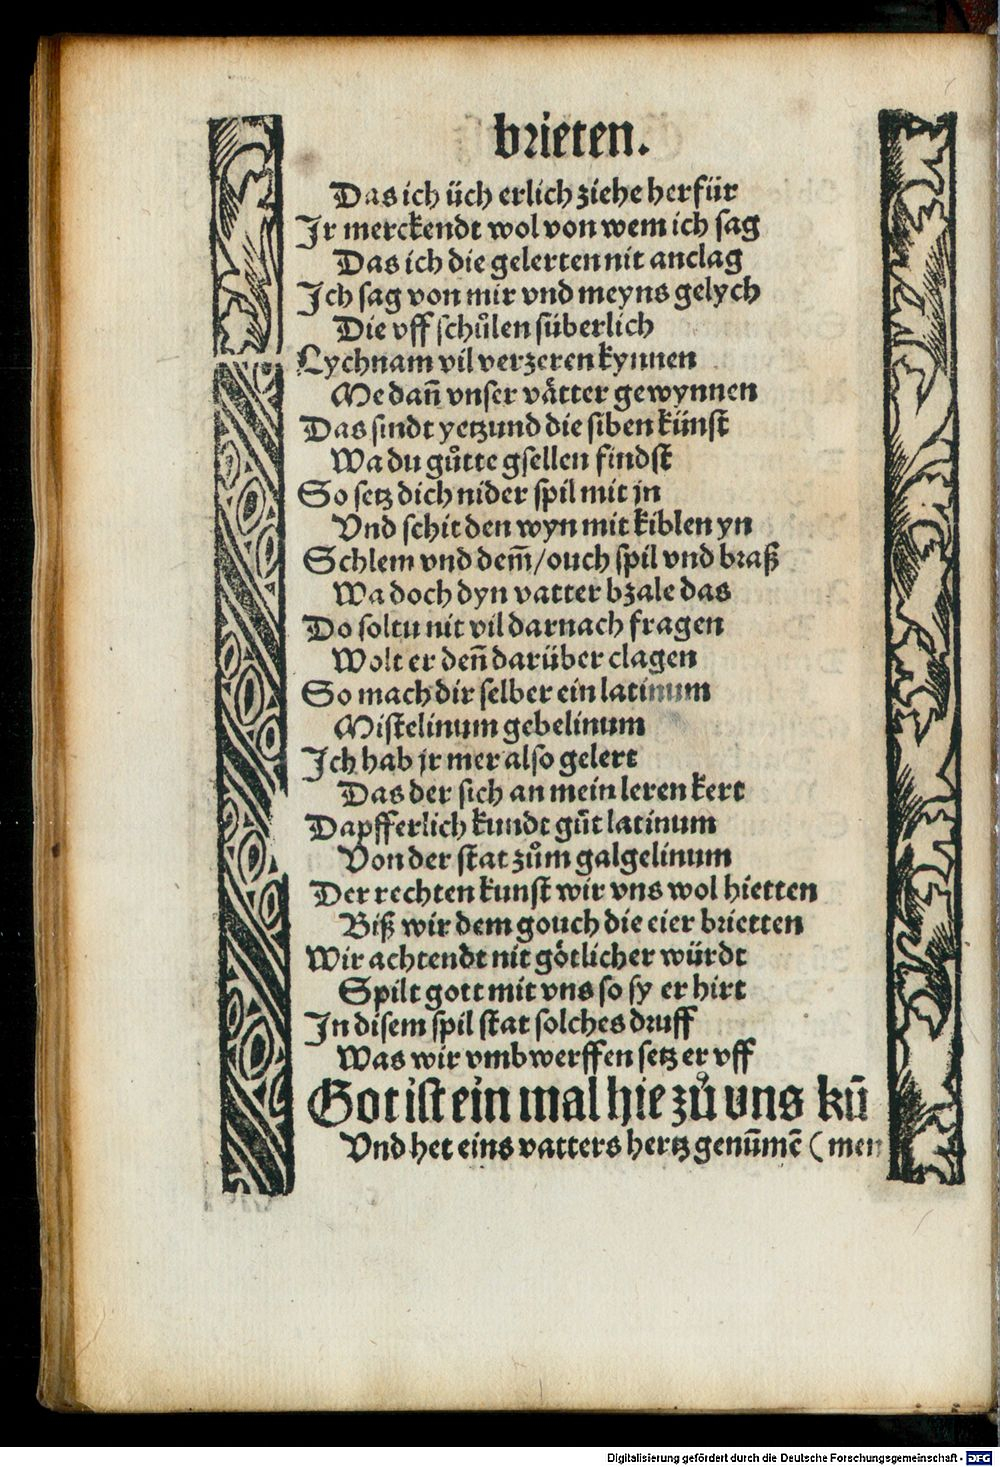 brieten.
Das ich üch erlich ziehe herfür
Jr merckendt wol von wem ich sag
Das ich die gelerten nit anclag
Jch sag von mir vnd meyns gelych
Die vff schůlen süberlich
Lychnam vil verzeren kynnen
Me dañ vnser våtter gewynnen
Das sindt yetzund die siben künst
Wa du gůtte gsellen findst
So setz dich nider spil mit jn
Vnd schit den wyn mit kiblen yn
Schlem vnd dem̃/ouch spil vnd braß
Wa doch dyn vatter bzale das
Do soltu nit vil darnach fragen
Wolt er deñ darüber clagen
So mach dir selber ein latinum
Mistelinum gebelinum
Jch hab jr mer also gelert
Das der sich an mein leren kert
Dapfferlich kundt gůt latinum
Von der stat zům galgelinum
Der rechten kunst wir vns wol hietten
Biß wir dem gouch die eier brietten
Wir achtendt nit götlicher würdt
Spilt gott mit vns so sy er hirt
Jn disem spil stat solches druff
Was wir vmbwerffen setz er vff
Got ist ein mal hie zů vns kũ
Vnd het eins vatters hertz genũmẽ (men
Digitalisierung gefördert durch die Deutsche Forschungsgemeinschaft - DFG